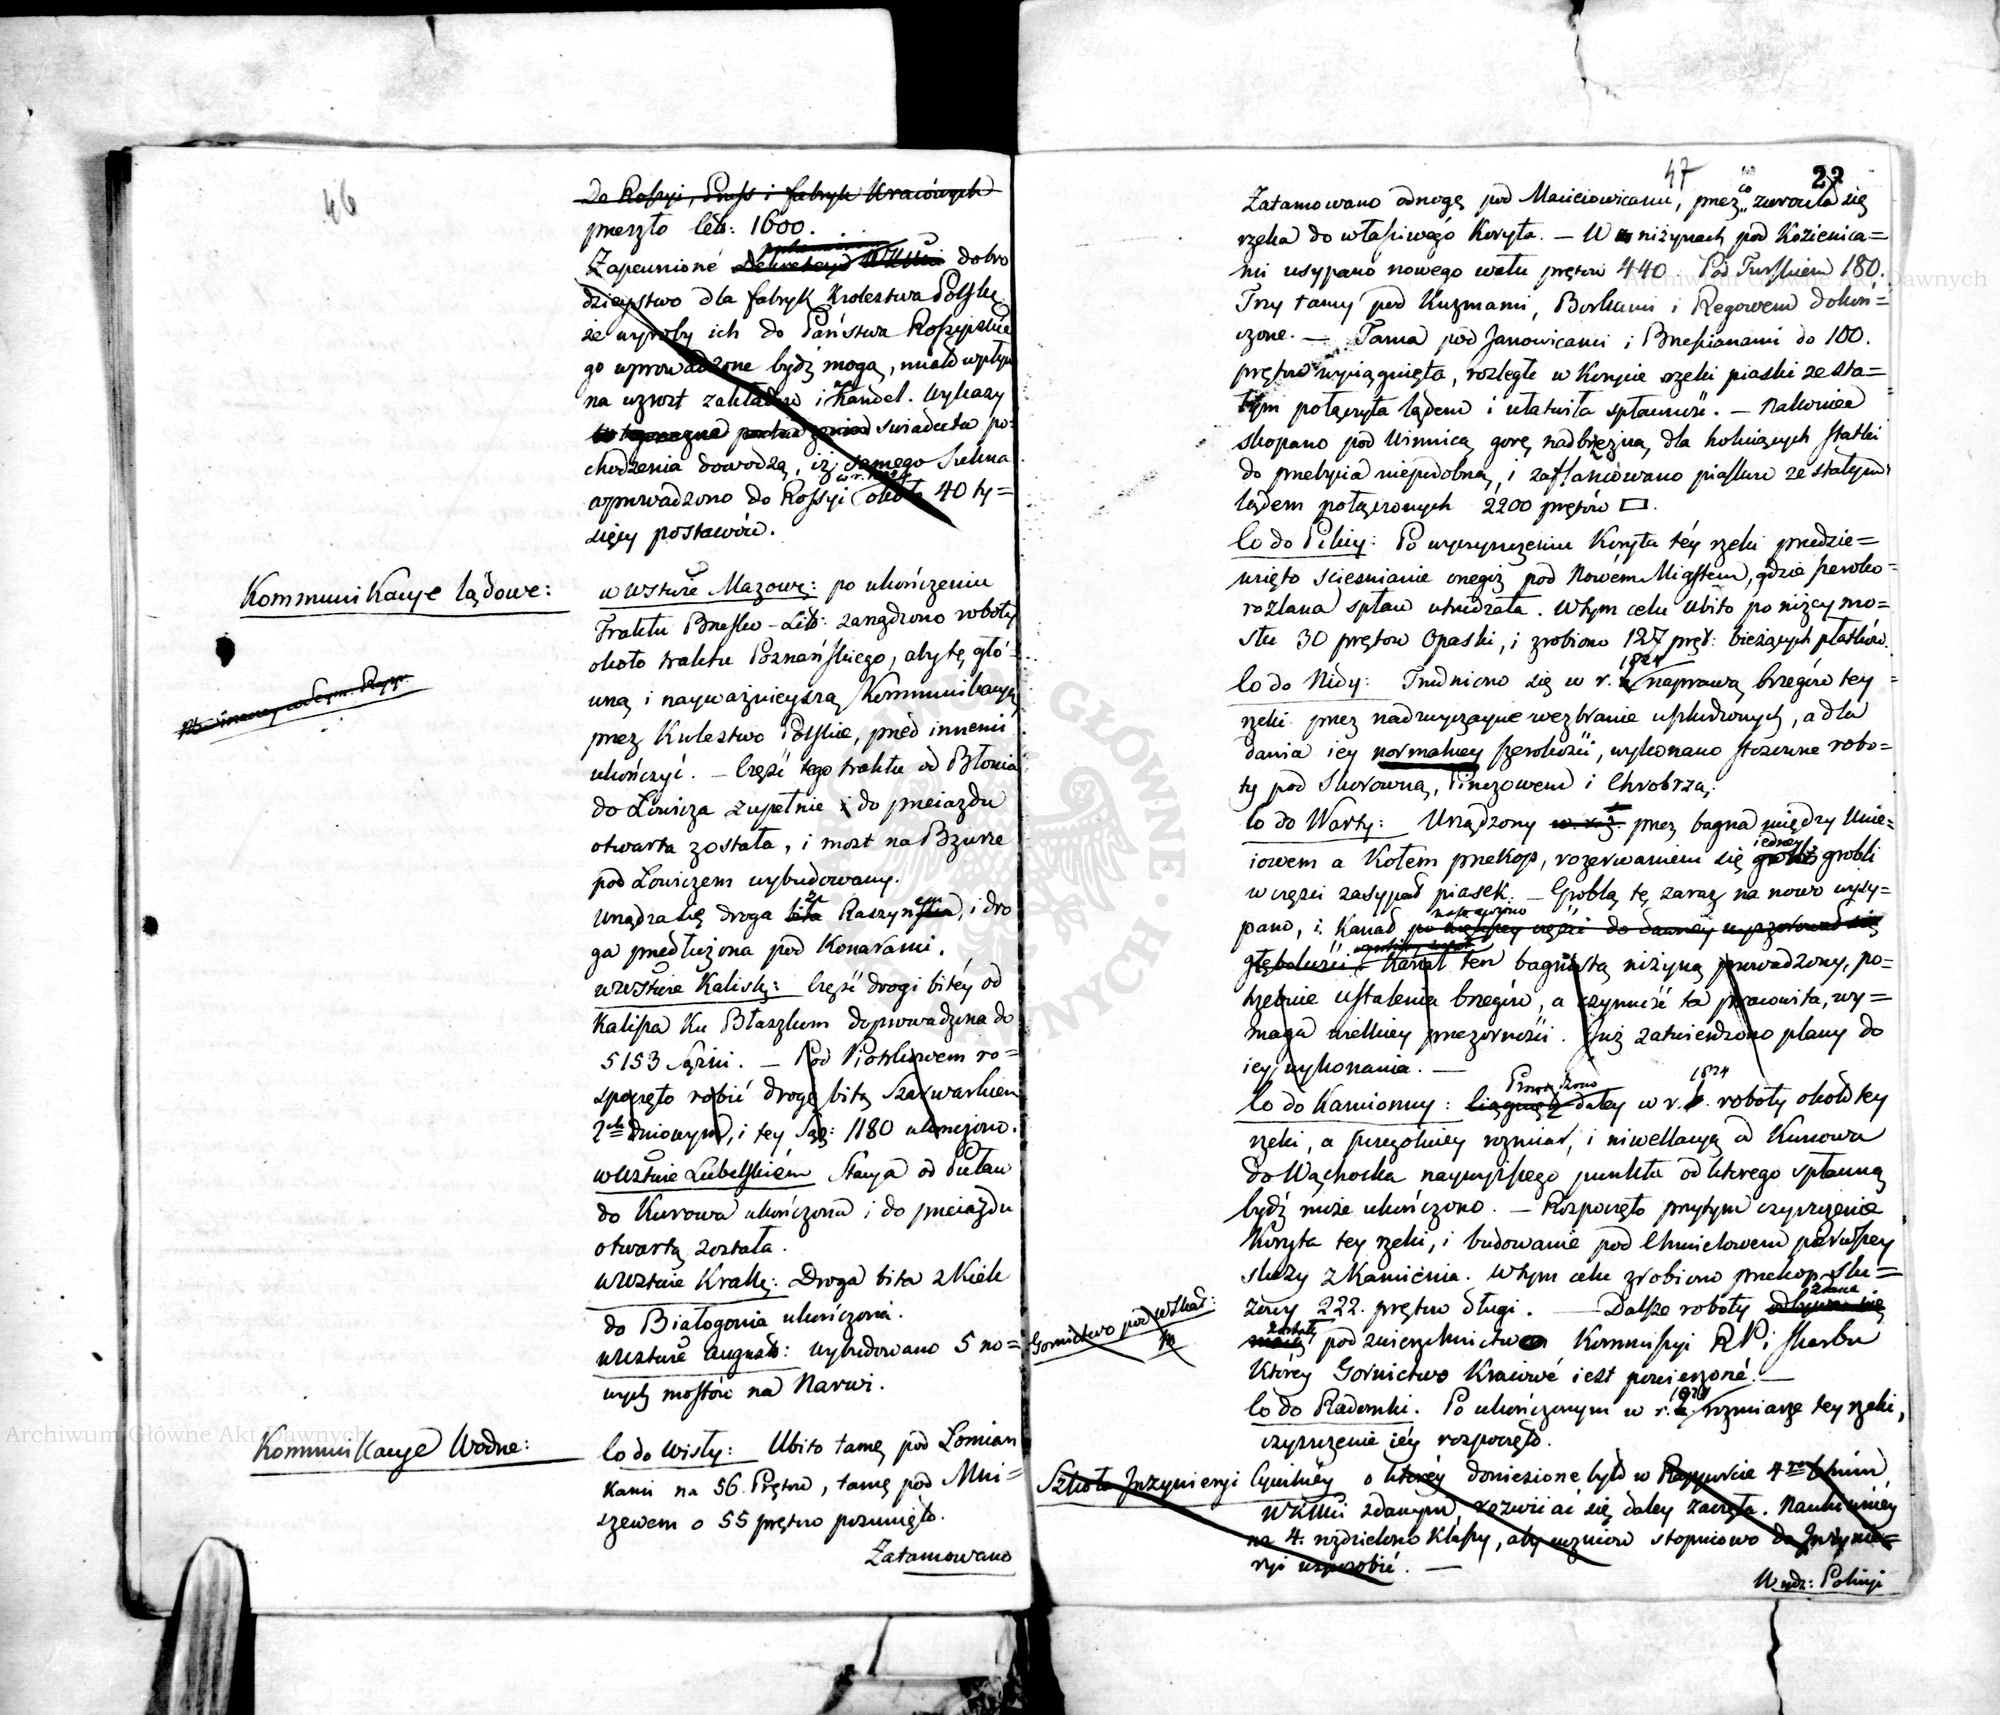 46
Do Rossyi, Pruss i fabryk Kraiowych
przeszło lett: 1600.
Zapewnioné Dekretem WKMci dobro
dzieystwo dla fabryk Krolestwa Polskę
że wyroby ich do Państwa Rossyiskie
go wprowadzone bydź mogą, miało wpływ
na wzrost zakładów i Handel. Wykazy
swiadectw po-
chodzenia dowodzą, iż samego Sukna
wprowadzono do Rossyi w r. 1824 około 40 ty=
sięcy postawów.
Kommunikacye lądowe:
w Wsztwie Mazowę: po ukończeniu
Traktu Brzesko-Litt: zarządzono roboty
około traktu Poznańskiego, aby tę głó-
wną i nayważnieyszą Kommunikacyą
przez Kulestwo Polskie, przed innemi
ukończyć. — Część tego traktu od Błonia
do Łowicza zupełnie i do przeiazdu
otwarta została, i most na Bzurze
pod Łowiczem wybudowany.
Urządza się droga bita za Raszynem, i dro
ga przedłużona pod Konarami.
w Wsztwie Kaliskę: Część drogi bitéy od
Kalisza Ku Błaszkom doprowadzona do
5153 Sążni. — Pod Piotrkowem ro=
zpoczęto robić drogę bitą Szarwarkiem
2ch dniowym, i tey Sąż: 1180 ukończono.
w Wsztwie Lubelskiém Stacya od Puław
do Kurowa ukończona i do przeiazdu
otwartą została.
w Wsztwie Krakę: Droga bita z Kielc
do Białogonia ukończona.
w Wsztwie August: wybudowano 5 no=
wych mostów na Narwi.
Kommunikacye Wodne:
Co do Wisły: Ubito tamę pod Łomian
Kami na 56. Prętów, tamę pod Mni=
szewem o 55 prętów posunięto.
Zatamowano
47
22
Zatamowano odnogę pod Maciciowicami, przez co zwrociła się
rzeka do właściwégo Koryta. — W niżynach pod Kozienica=
mi usypano nowego wału prętów 440. Pod Turskiem 180.
Trzy tamy pod Kuzmami, Borkami i Regowem dokoń=
czone. — Tama pod Janowicami i Brzesianami do 100.
prętów wyciągnięta, rozległe w Korycie rzeki piaski ze sta=
łym połączyła lądem i ułatwiła spławność. — Nakoniec
skopano pod Winnicą gorę nadbrzeżną, dla holuiących statki
do przebycia niepodobną, i zaflancowano piasków ze stałym
lądem połączonych 2200 prętów □.
Co do Pilicy: Po wyczyszczeniu Koryta téy rzeki przedsie=
wzięto scieśnianie onegoż pod Nowém Miastem, gdzie szeroko-
rozlana spław utrudzała. W tym celu ubito poniżey mo=
stu 30 prętów Opaski, i zrobiono 127 pręt: bieżących płotków.
Co do Nidy: Trudniono się w r. 1824 naprawą brzegów tey
rzeki przez nadzwyczayne wezbranie uszkodzonych, a dla
dania iey normalney szerokości, wykonano stosowne robo=
ty pod Skorowną, Pinczowem i Chrobrzą.
Co do Warty: Urządzony przez bagna między Unie=
iowem a Kołem przekop, rozerwaniem się iedney grobli
w części zasypał piasek. — Groblą tę zaraz na nowo usy-
pano, i Kanał po większey części do dawney
głębokości. Kanał ten bagnistą niżyną prowadzony, po=
trzebuie ustalenia brzegów, a czynność ta pracowita, wy=
maga wielkiey przezorności. Już zatwierdzono plany do
iey wykonania. —
Co do Kamionny: Prowadzono daley w r. 1824 roboty około tey
rzeki, a szczegolniey rozmiar, i niwellacyą od Kunowa
do Wąchocka naywyższego punktu od ktorego spławną
bydź może ukończono. — Rozpoczęto przytym czyszczenie
Koryta tey rzeki, i budowanie pod Chmielowem pierwszey
sluzy z Kamienia. W tym celu zrobiono przekop slu=
zowy 222. prętów długi. — Dalsze roboty
zostały pod zwierzchnictwem Kommissyi RP i Skarbu
Którey Gornictwo Kraiowé iest powierzoné. —
Gornictwo pod
Co do Radomki. Po ukończonym w r. 1824 rozmiarze tey rzeki,
czyszczenie iéy rozpoczęto.
Szkoła Inżynieryi Cywilnéy o ktorey doniesione było w Rapporcie
WKMci zdanym, rozwiiać się daley zaczęła. Nauki w niéy
na 4. rozdzielono Klassy, aby uczniów stopniowo do Inżynie=
ryi usposobić. —
Wydz: Policyi
Archiwum Główne Akt Dawnych
Archiwum Główne Akt Dawnych